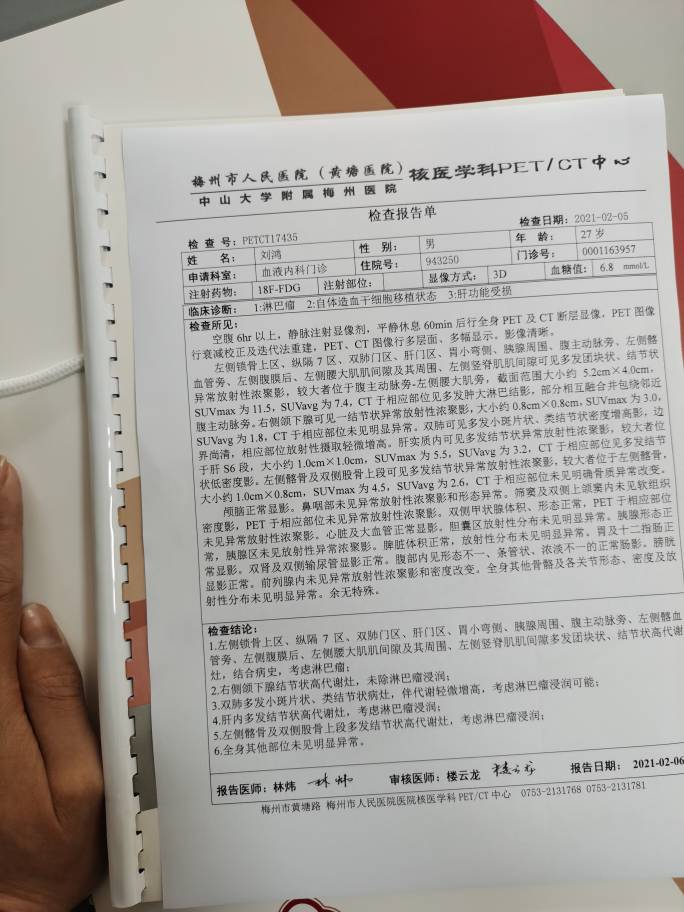 梅州市人民医院（黄塘医院）
中山大学附属梅州医院
核医学科PET/CT中心
检查报告单
检查号：PETCT17435 检查日期：2021-02-05
姓名： 刘鸿 性别： 男 年龄： 27岁
申请科室： 血液内科门诊 住院号： 943250 门诊号： 0001163957
注射药物： 18F-FDG 注射部位： 显像方式： 3D 血糖值： 6.8 mmol/L
临床诊断： 1:淋巴瘤 2:自体造血干细胞移植状态 3:肝功能受损
检查所见：
空腹 6hr 以上，静脉注射显像剂，平静休息 60min 后行全身 PET 及 CT 断层显像，PET 图像
行衰减校正及迭代法重建，PET、CT 图像行多层面、多幅显示。影像清晰。
左侧锁骨上区、纵隔 7 区、双肺门区、肝门区、胃小弯侧、胰腺周围、腹主动脉旁、左侧髂
血管旁、左侧腹膜后、左侧腰大肌肌间隙及其周围、左侧竖脊肌肌间隙可见多发团块状、结节状
异常放射性浓聚影，较大者位于腹主动脉旁-左侧腰大肌旁，截面范围大小约 5.2cm×4.0cm，
SUVmax 为 11.5，SUVavg 为 7.4，CT 于相应部位见多发肿大淋巴结影，部分相互融合并包绕邻近
腹主动脉旁。右侧颌下腺可见一结节状异常放射性浓聚影，大小约 0.8cm×0.8cm，SUVmax 为 3.0，
SUVavg 为 1.8，CT 于相应部位未见明显异常。双肺可见多发小斑片状、类结节状密度增高影，边
界尚清，相应部位放射性摄取轻微增高。肝实质内可见多发结节状异常放射性浓聚影，较大者位
于肝 S6 段，大小约 1.0cm×1.0cm，SUVmax 为 5.5，SUVavg 为 3.2，CT 于相应部位见多发结节
状低密度影。左侧髂骨及双侧股骨上段可见多发结节状异常放射性浓聚影，较大者位于左侧髂骨，
大小约 1.0cm×0.8cm，SUVmax 为 4.5，SUVavg 为 2.6，CT 于相应部位未见明确骨质异常改变。
颅脑正常显影。鼻咽部未见异常放射性浓聚影和形态异常。筛窦及双侧上颌窦内未见软组织
密度影，PET 于相应部位未见异常放射性浓聚影。双侧甲状腺体积、形态正常，PET 于相应部位
未见异常放射性浓聚影。心脏及大血管正常显影。胆囊区放射性分布未见明显异常。胰腺形态正
常，胰腺区未见放射性异常浓聚影。脾脏体积正常，放射性分布未见明显异常。胃及十二指肠正
常显影。双肾及双侧输尿管显影正常。腹部内见形态不一、条管状、浓淡不一的正常肠影。膀胱
显影正常。前列腺内未见异常放射性浓聚影和密度改变。全身其他骨骼及各关节形态、密度及放
射性分布未见明显异常。余无特殊。
检查结论：
1.左侧锁骨上区、纵隔 7 区、双肺门区、肝门区、胃小弯侧、胰腺周围、腹主动脉旁、左侧髂血
管旁、左侧腹膜后、左侧腰大肌肌间隙及其周围、左侧竖脊肌肌间隙多发团块状、结节状高代谢
灶，结合病史，考虑淋巴瘤；
2.右侧颌下腺结节状高代谢灶，未除淋巴瘤浸润；
3.双肺多发小斑片状、类结节状病灶，伴代谢轻微增高，考虑淋巴瘤浸润可能；
4.肝内多发结节状高代谢灶，考虑淋巴瘤浸润；
5.左侧髂骨及双侧股骨上段多发结节状高代谢灶，考虑淋巴瘤浸润；
6.全身其他部位未见明显异常。
报告医师：林炜 林炜 审核医师：楼云龙 楼云龙 报告日期： 2021-02-06
梅州市黄塘路 梅州市人民医院医院核医学科 PET/CT 中心 0753-2131768 0753-2131781